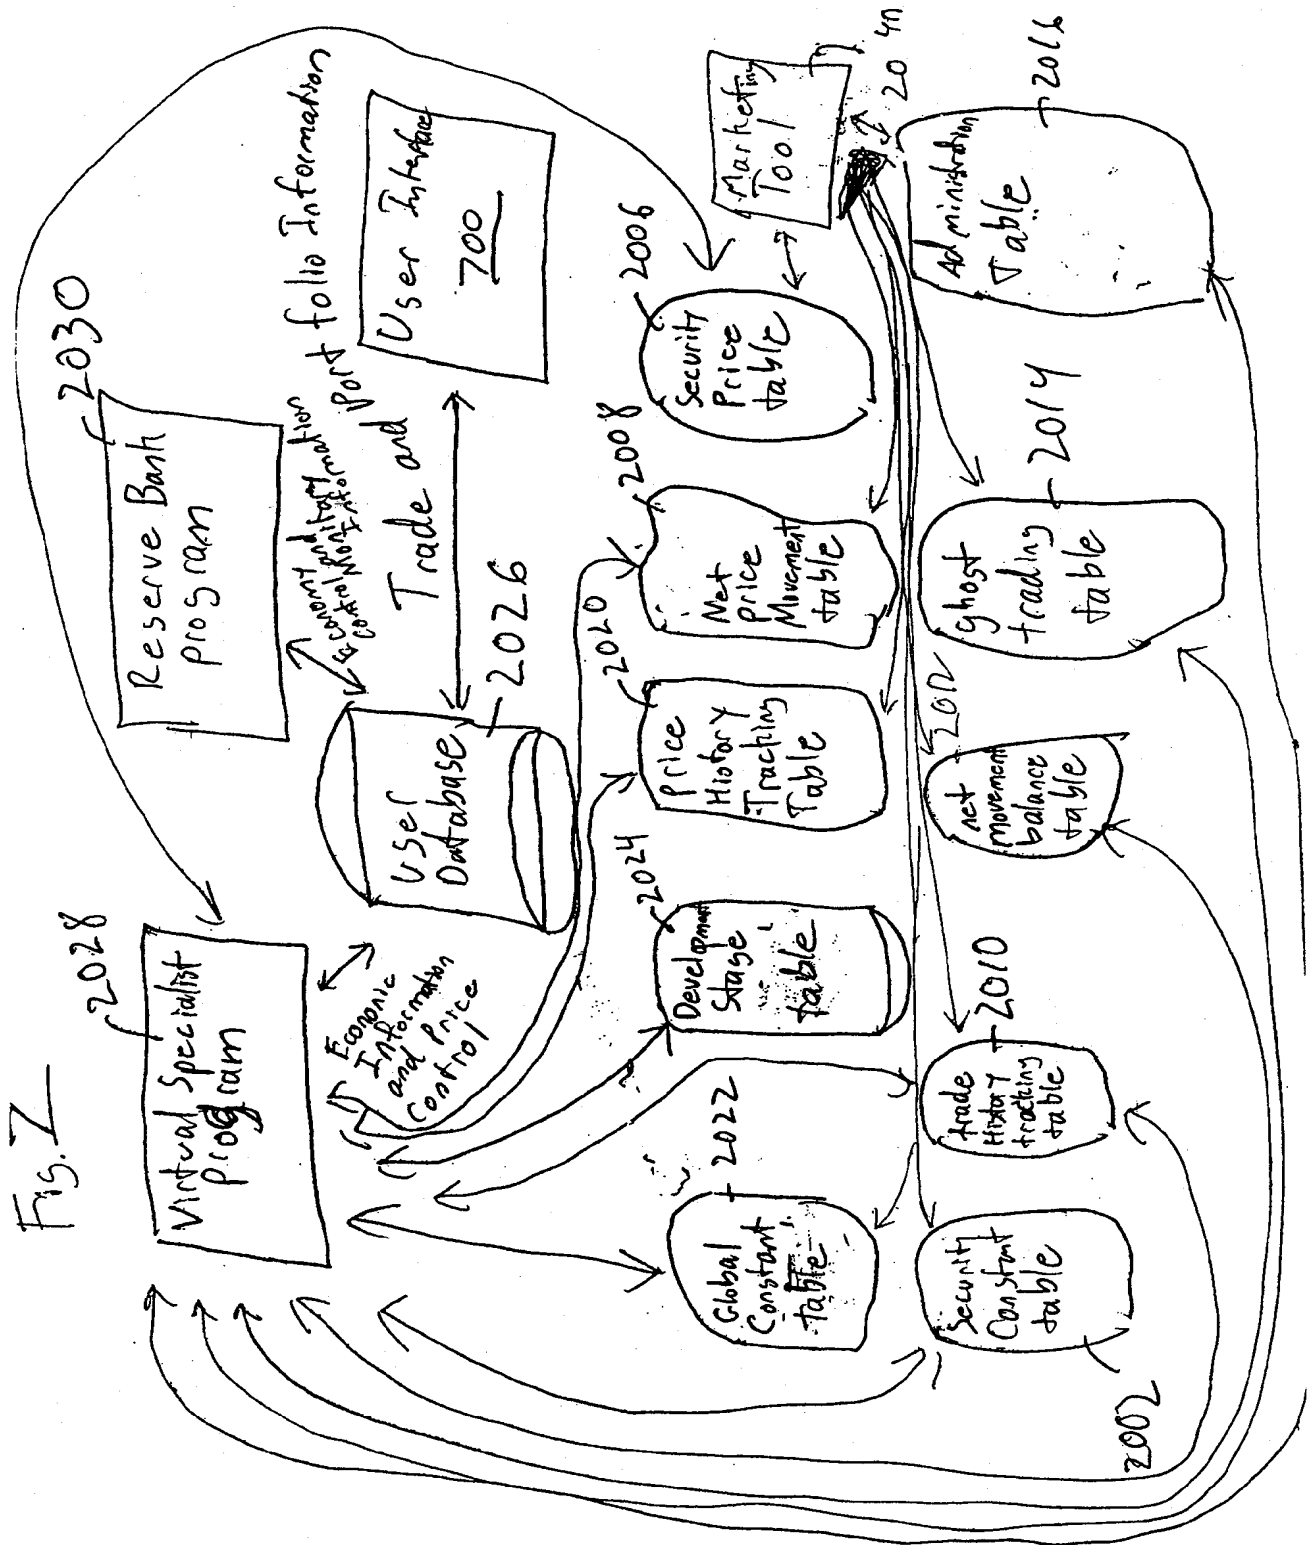 Fig.2
2028
Virtual Specialist
Program
2030
Reserve Bank
Program
Economic
Information
and Price
Control
User
Database
2026
Economy and
control
Information
Trade and Portfolio Information
User Interface
200
2022
Global
Constant
table
2024
Development
Stage
table
2020
Price
History
Tracking
Table
2008
Net
Price
Movement
table
2006
Security
Price
table
Marketing
Tool
Security
Constant
table
2002
trade
History
tracking
table
2010
2012
net
movement
balance
table
ghost
trading
table
2014
Administration
Table
2016